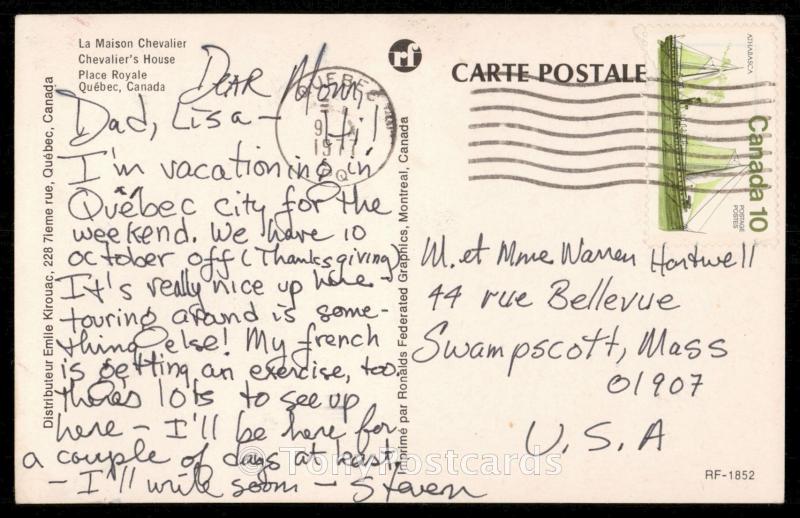 La Maison Chevalier
Chevalier's House
Place Royale
Québec, Canada
Distributeur Emile Kirouac, 228 7ieme rue, Québec, Canada
Imprimé par Ronalds Federated Graphics, Montreal, Canada
rf
CARTE POSTALE
ATHABASCA
Canada 10
POSTAGE
POSTES
QUEBEC
1977
PQ
DEAR Mom,
Dad, Lisa - Hi!
I'm vacationing in
Québec city for the
weekend. We have 10
october off (Thanksgiving)
It's really nice up here -
touring around is some-
thing else! My french
is getting an exercise, too.
theres lots to see up
here - I'll be here for
a couple of days at least
- I'll write soon - Steven
M. et Mme Warren Hartwell
44 rue Bellevue
Swampscott, Mass
01907
U.S.A
RF-1852
© TonyPostcards